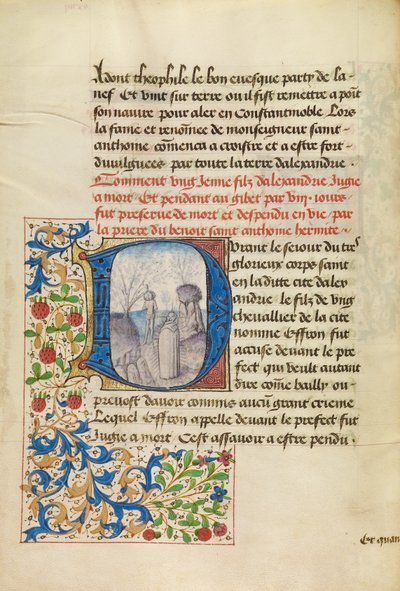 Adont theophile le bon evesque party de la-
nef Et vint sur terre ou il fist remettre a point
son navire pour aler en Constantinoble Lors
la fame et renommee de monseigneur saint-
anthoine comenca a croistre et a estre fort-
divulguees par toute la terre dalexandrie.
Comment vng Jenne filz dalexandrie Jugie
a mort. Et pendant au gibet par viii. iours.
fut preserve de mort et despendu en vie. par
la priere du benoit saint anthoine hermite.
Durant le seiour du tres
glorieux corps saint
en ladite cite dalex
andrie le filz de vng
chevallier de la cite
nomme Effron fut
accuse devant le pre
fect qui veult autant
dire come bailly ou-
prevost davoir commis aucun grant crieme
Lequel Effron appelle devant le prefect fut
Jugie a mort Cest assavoir a estre pendu.
Et quan